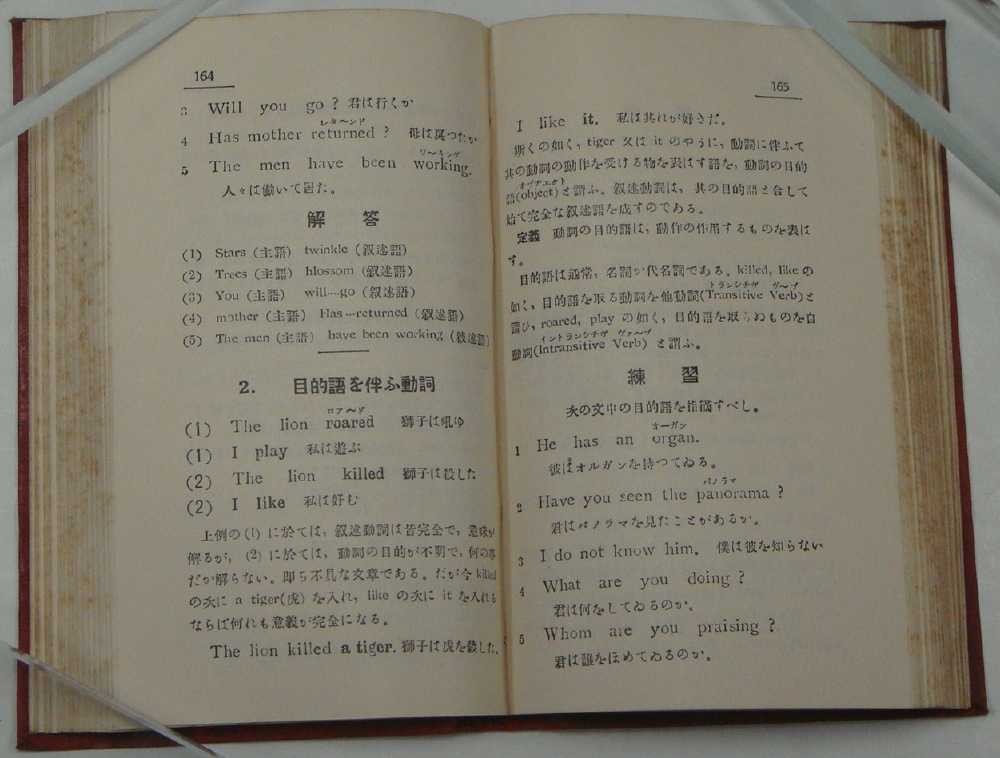 164
3 Will you go? 君は行くか
レターンド
4 Has mother returned? 母は戻つたか
ワーキング
5 The men have been working.
人々は働いて居た。
解答
(1) Stars (主語) twinkle (叙述語)
(2) Trees (主語) blossom (叙述語)
(3) You (主語) will…go (叙述語)
(4) mother (主語) Has…returned (叙述語)
(5) The men (主語) have been working (叙述語)
2. 目的語を伴ふ動詞
ロアード
(1) The lion roared 獅子は吼ゆ
(1) I play 私は遊ぶ
(2) The lion killed 獅子は殺した
(2) I like 私は好む
上例の (1) に於ては、叙述動詞は皆完全で、意味が
解るが、(2) に於ては、動詞の目的が不明で、何の事
だか解らない。即ち不具な文章である。だが今 killed
の次に a tiger(虎) を入れ、like の次に it を入れる
ならば何れも意義が完全になる。
The lion killed a tiger. 獅子は虎を殺した。
165
I like it. 私は其れが好きだ。
斯くの如く、tiger 又は it のやうに、動詞に伴ふて
其の動詞の動作を受ける物を表はす語を、動詞の目的
オブヂエクト
語(object)と謂ふ。叙述動詞は、其の目的語と合して
始て完全な叙述語を成すのである。
定義 動詞の目的語は、動作の作用するものを表は
す。
目的語は通常、名詞か代名詞である。killed, like の
トランシチヴ ヴーブ
如く、目的語を取る動詞を他動詞(Transitive Verb)と
謂ひ、roared, play の如く、目的語を取らぬものを自
イントランシチヴ ヴァーブ
動詞(Intransitive Verb) と謂ふ。
練習
次の文中の目的語を指摘すべし。
オーガン
1 He has an organ.
彼はオルガンを持つてゐる。
パノラマ
2 Have you seen the panorama?
君はパノラマを見たことがあるか。
3 I do not know him. 僕は彼を知らない
4 What are you doing?
君は何をしてゐるのか。
5 Whom are you praising?
君は誰をほめてゐるのか。